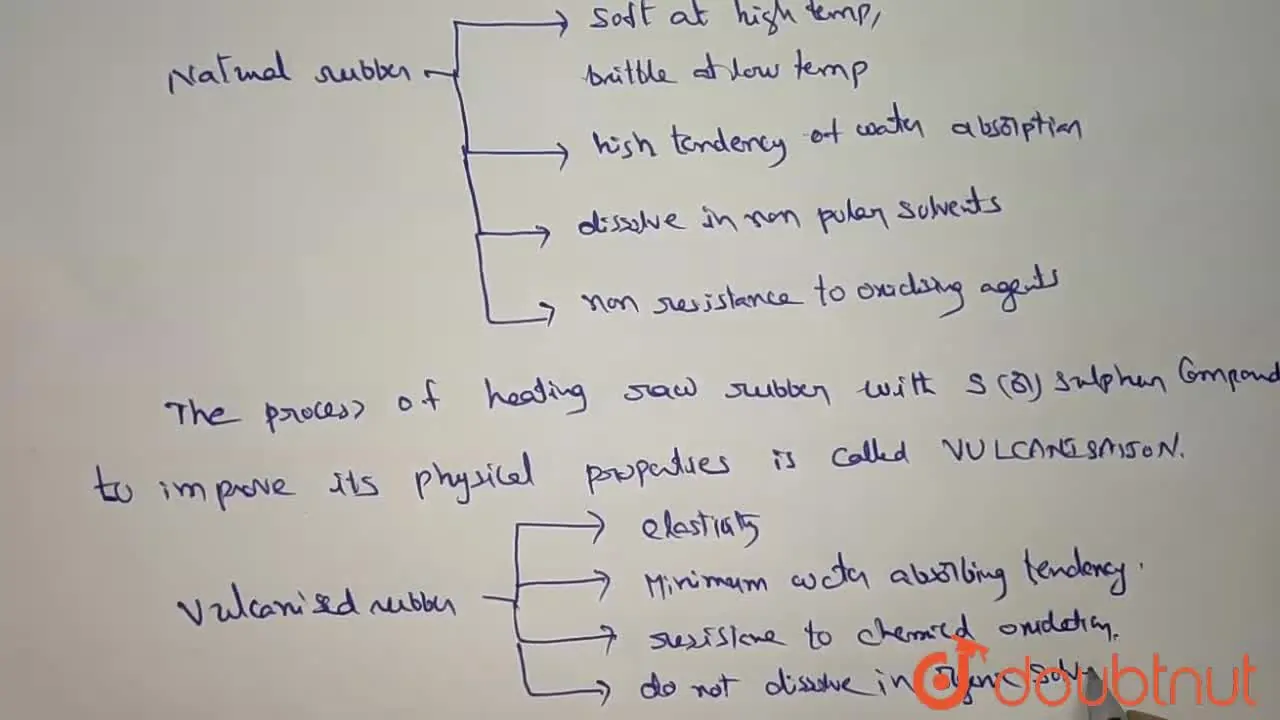 soft at high temp,
Natural rubber
brittle at low temp
high tendency of water absorption
dissolve in non polar solvents
non resistance to oxidising agents
The process of heating raw rubber with S (or) Sulphur Compound
to improve its physical properties is called VULCANISATION.
elasticity
Minimum water absorbing tendency.
Vulcanised rubber
resistance to chemical oxidation.
do not dissolve in organic solv
doubtnut